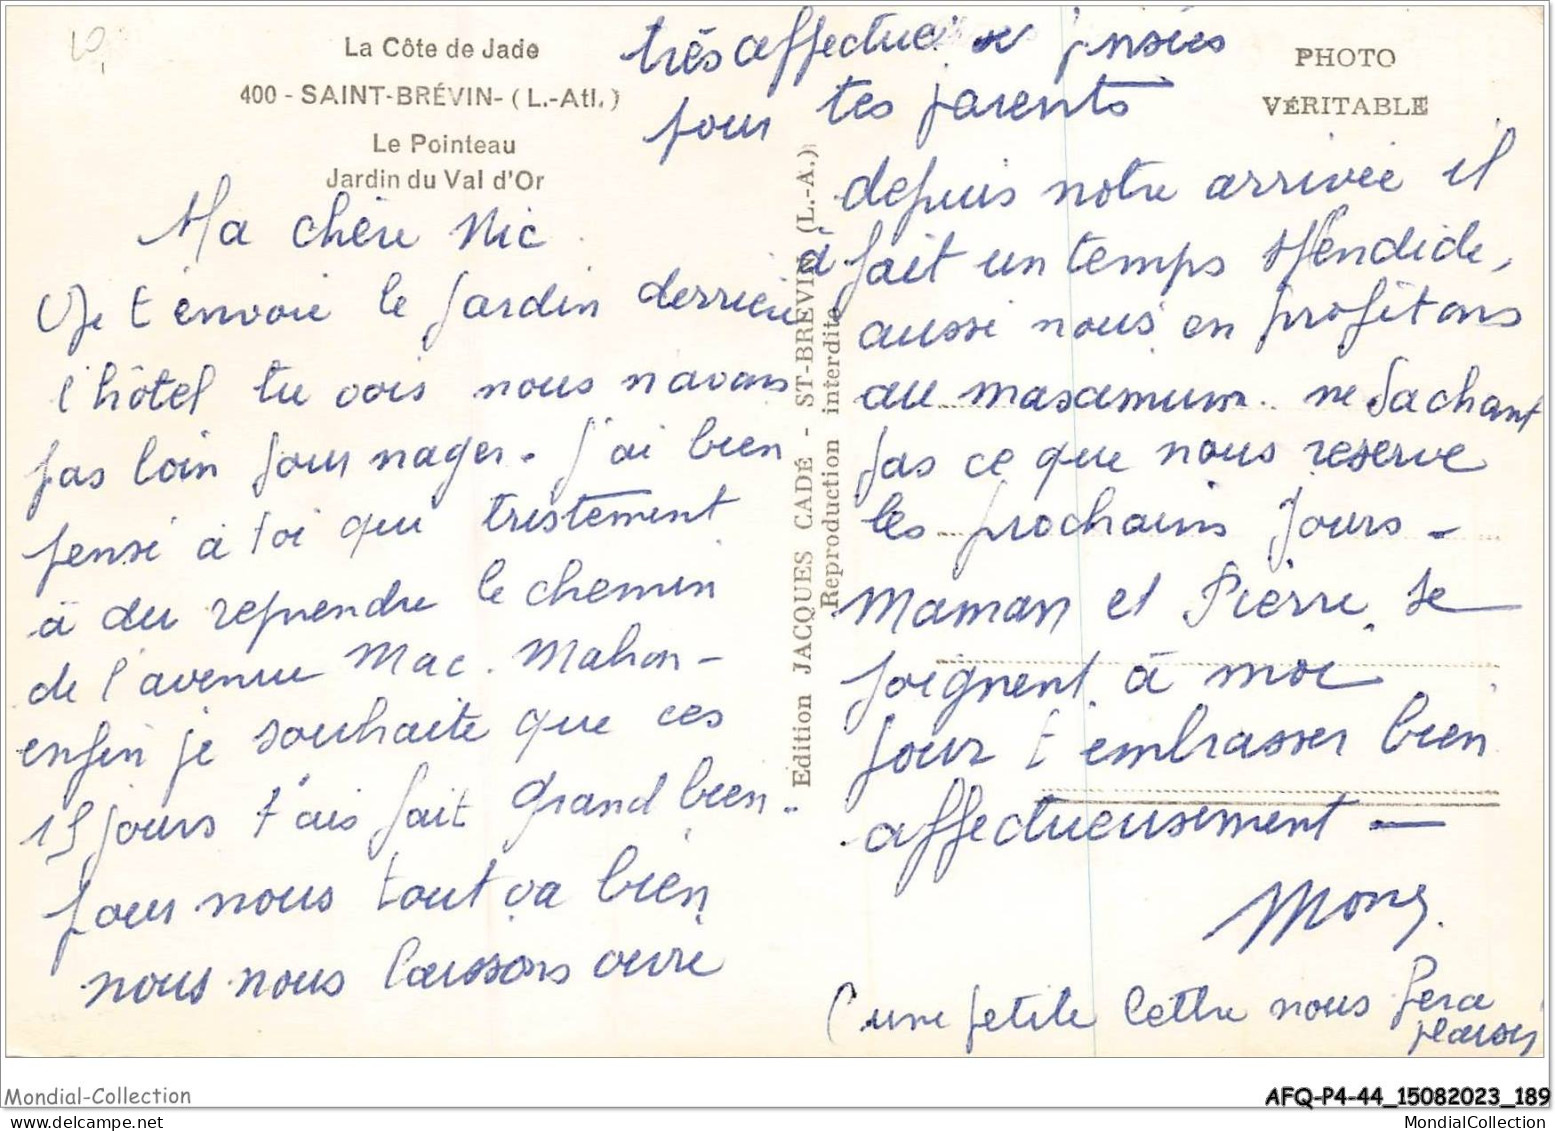 La Côte de Jade
400 - SAINT-BRÉVIN- ( L.-Atl. )
Le Pointeau
Jardin du Val d'Or
PHOTO
VÉRITABLE
très affectueuses pensées
pour tes parents
Ma chère Nic
Je t'envoie le jardin derrière
l'hôtel tu vois nous n'avons
pas loin pour nager. J'ai bien
pensé à toi qui tristement
à du reprendre le chemin
de l'avenue Mac. Mahon -
enfin je souhaite que ces
15 jours t'ais fait grand bien -
pour nous tout va bien
nous nous laissons vivre
Edition JACQUES CADÉ - ST-BRÉVIN (L.-A.)
Reproduction interdite
depuis notre arrivée il
fait un temps splendide,
aussi nous en profitons
au masamum. ne sachant
pas ce que nous reserve
les prochains jours -
Maman et Pierre se
joignent à moi
pour t'embrasser bien
affectueusement -
Mony.
(une petite lettre nous fera
plaisir
Mondial-Collection
AFQ-P4-44_15082023_189
MondialCollection